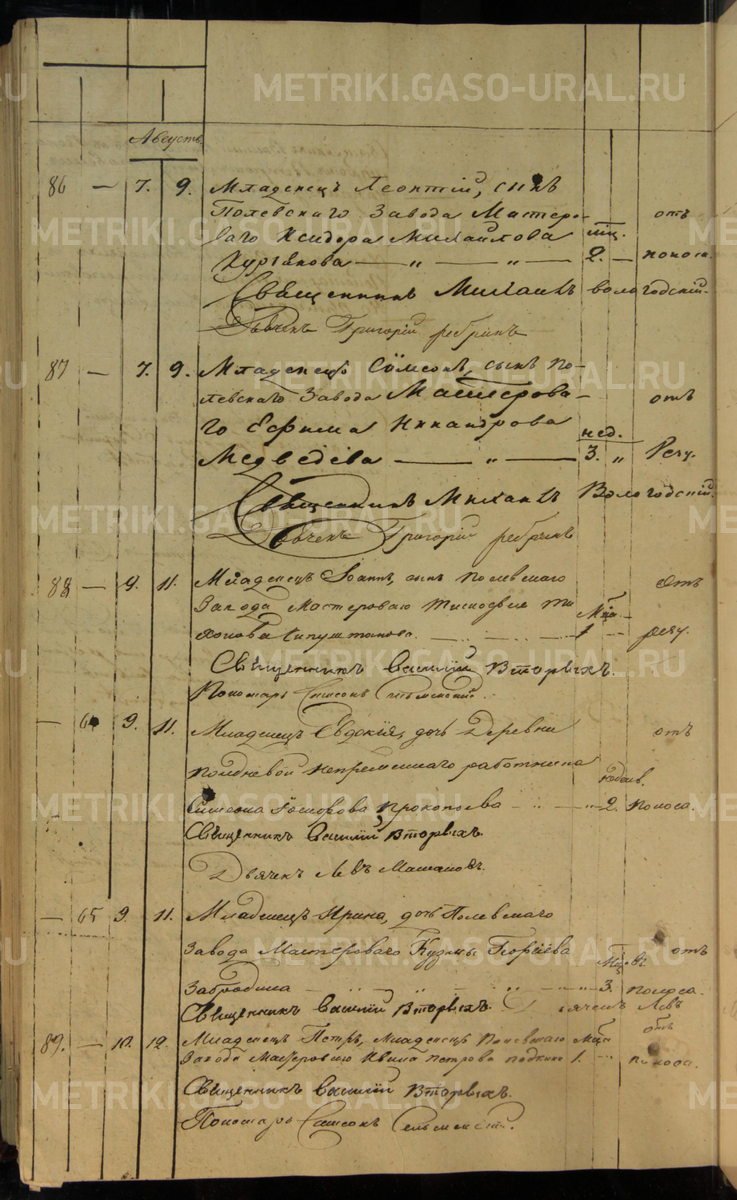 METRIKI.GASO-URAL.RU
Августъ
86 — 7. 9. Младенецъ Леонтій, сынъ
Полевскаго Завода Мастеро- отъ
ваго Исидора Михайлова мц.
Кургакова — „ — „ — 2. — поноса
Священникъ Михаилъ Вологодскій.
Дьячекъ Григорій
87 — 7. 9. Младенецъ Сѵмеонъ, сынъ По-
левскаго Завода Мастерова- отъ
го Ефима Никандрова нед.
Медведева — „ — 3. „ Резу.
Священникъ Михаилъ Вологодскій.
Дьячекъ Григорій
88 — 9. 11. Младенецъ Іоаннъ, сынъ Полевскаго Отъ
Завода Мастероваго Ти- Мца
хонова 1 — резу.
Священникъ Василій Вторыхъ.
Пономарь Самсонъ
— 64 9. 11. Младенецъ Евдокія, дочь Деревни отъ
Полдневой непремѣннаго работника
Симеона Прокопьева 2. поноса.
Священникъ Василій Вторыхъ.
Дьячекъ Левъ
— 65 9. 11. Младенецъ Ирина, дочь Полевскаго
Завода Мастероваго Кузмы отъ
Забродина 3. поноса.
Священникъ Василій Вторыхъ. Дьячекъ Левъ
89. — 10. 12. Младенецъ Петръ, Младенецъ Полевскаго Мца отъ
Завода Мастероваго Петрова 1. поноса.
Священникъ Василій Вторыхъ.
Пономарь Самсонъ